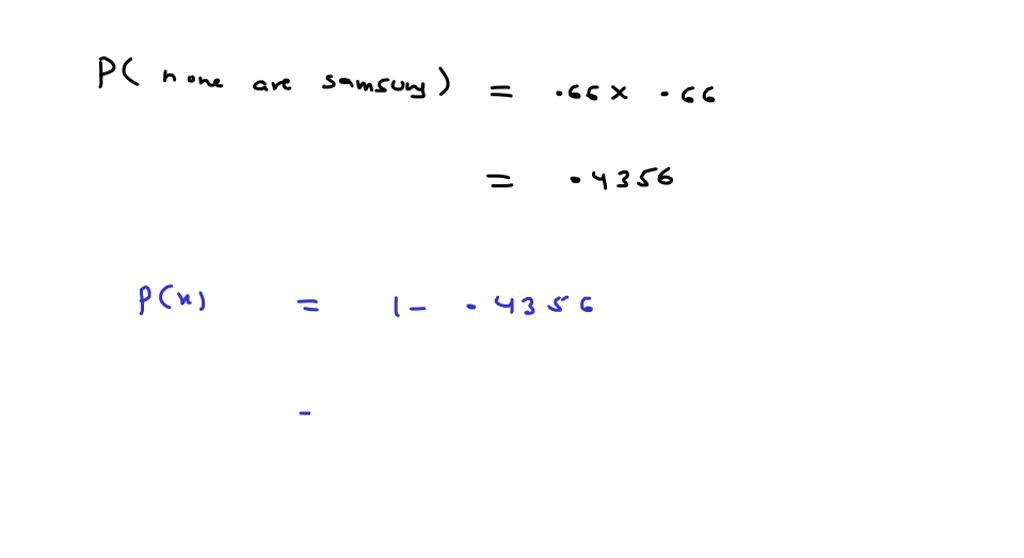 P( none are samsung ) = .66 x .66
= .4356
P(x) = 1 - .4356
-